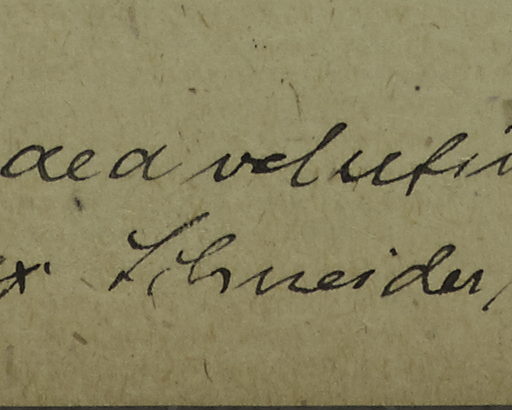 aea velutin
ex Schneider,